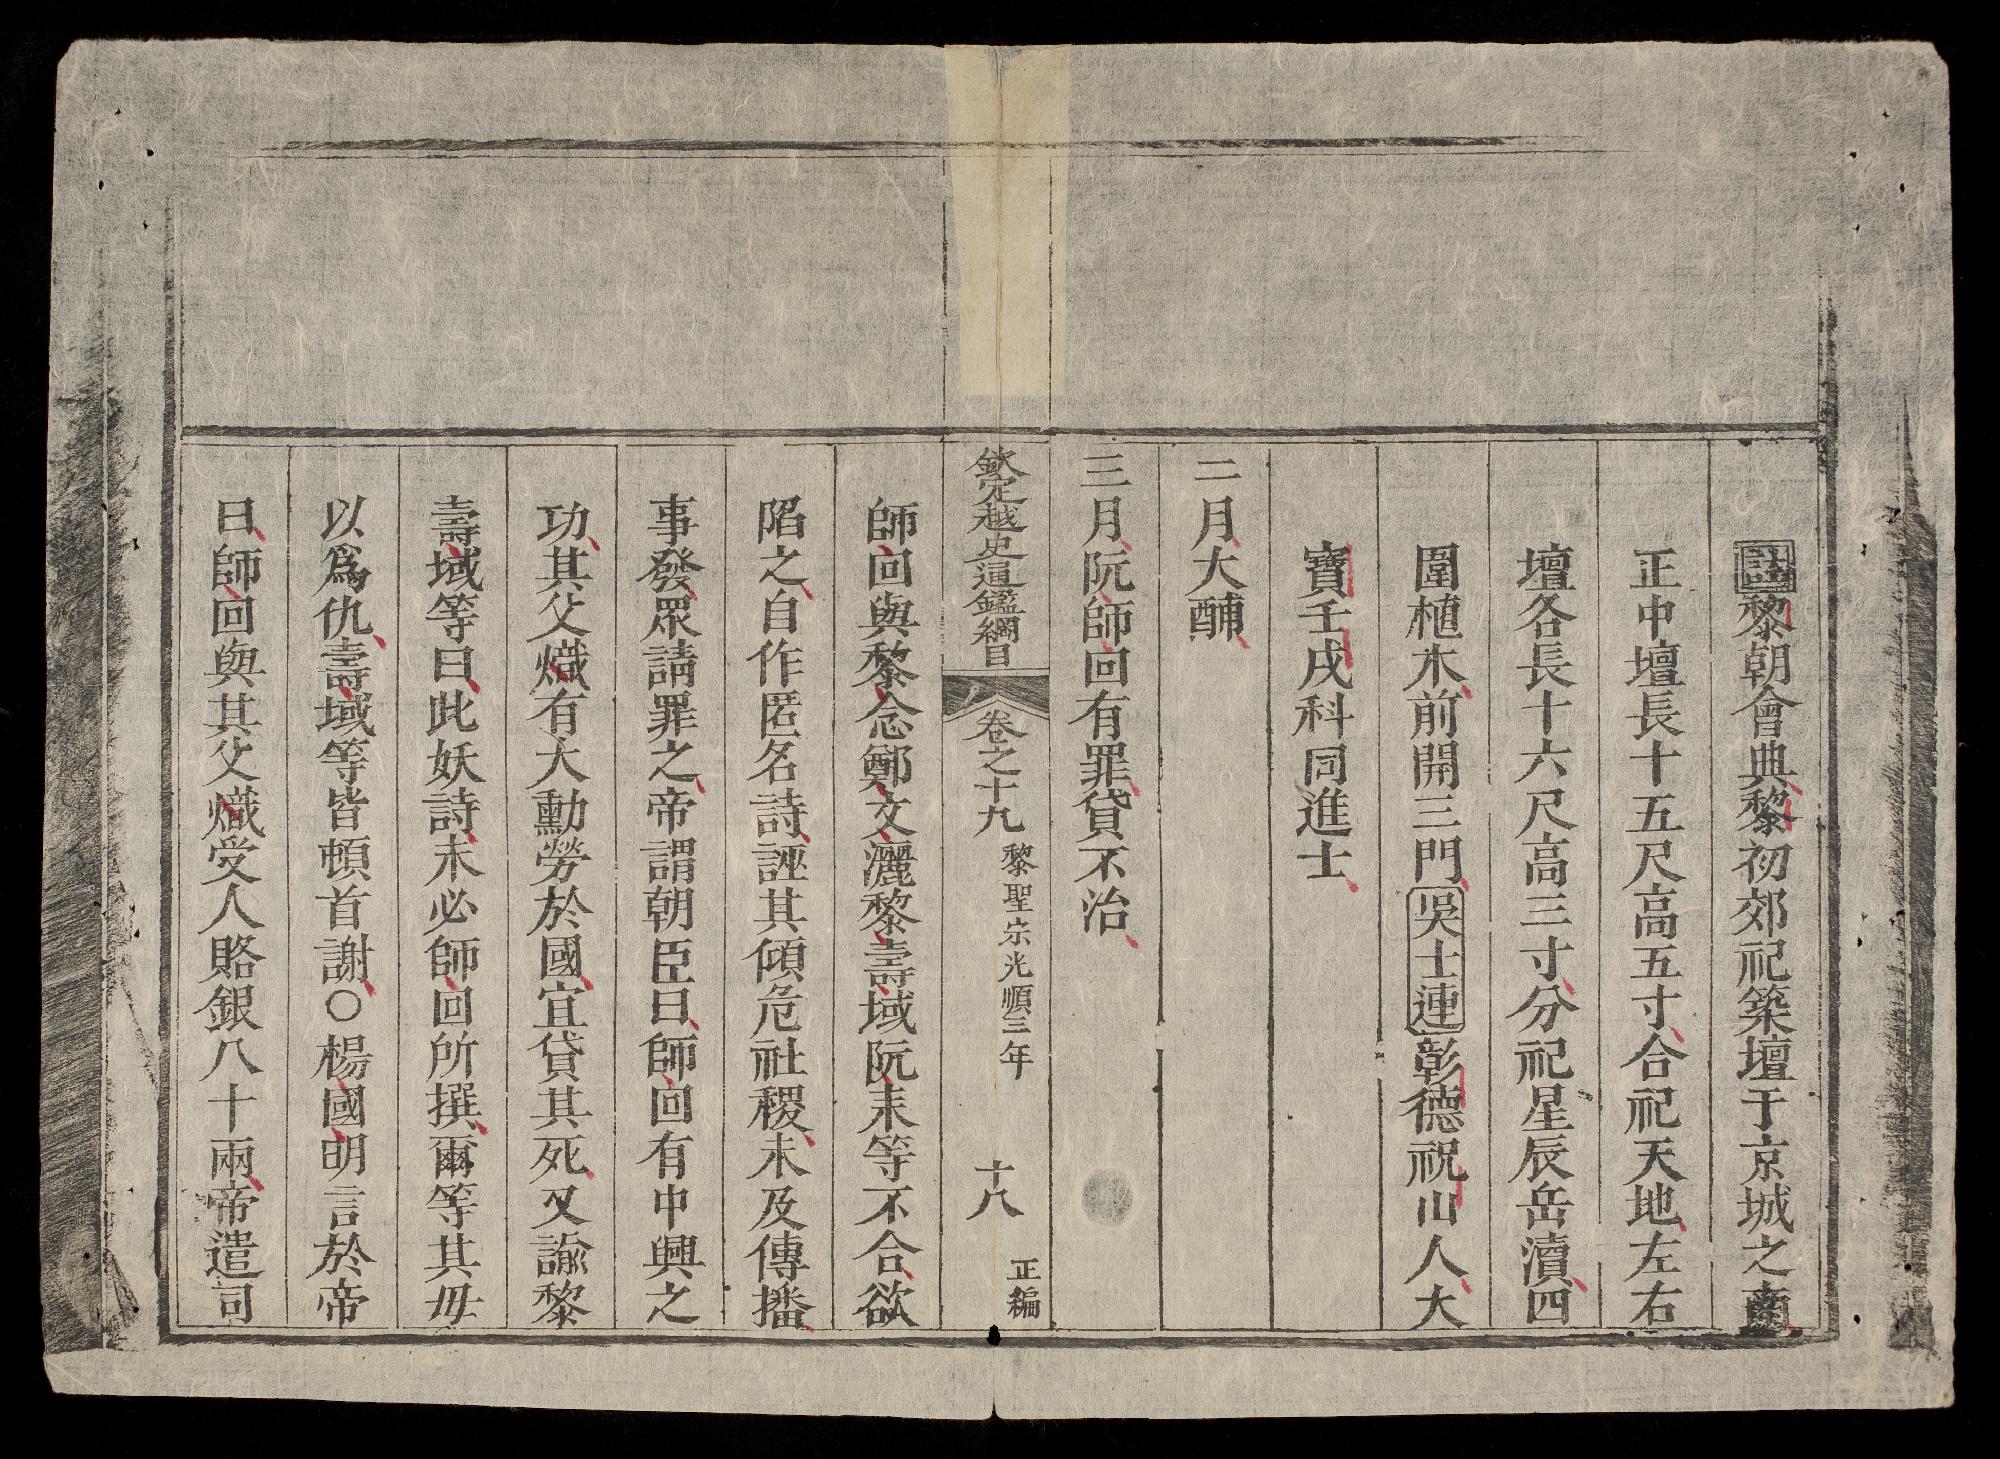 註黎朝會典黎初郊祀築壇于京城之南
正中壇長十五尺高五寸合祀天地左右
壇各長十六尺高三寸分祀星辰岳瀆四
圍植木前開三門吳士連彰德祝山人大
寶壬戌科同進士
二月大酺
三月阮師回有罪貸不治
欽定越史通鑑綱目 卷之十九 黎聖宗光順三年 十八 正編
師回與黎念鄭文灑黎壽域阮耒等不合欲
陷之自作匿名詩誣其傾危社稷未及傳播
事發眾請罪之帝謂朝臣曰師回有中興之
功其父熾有大勳勞於國宜貸其死又諭黎
壽域等曰此妖詩未必師回所撰爾等其毋
以爲仇壽域等皆頓首謝○楊國明言於帝
曰師回與其父熾受人賂銀八十兩帝遣司